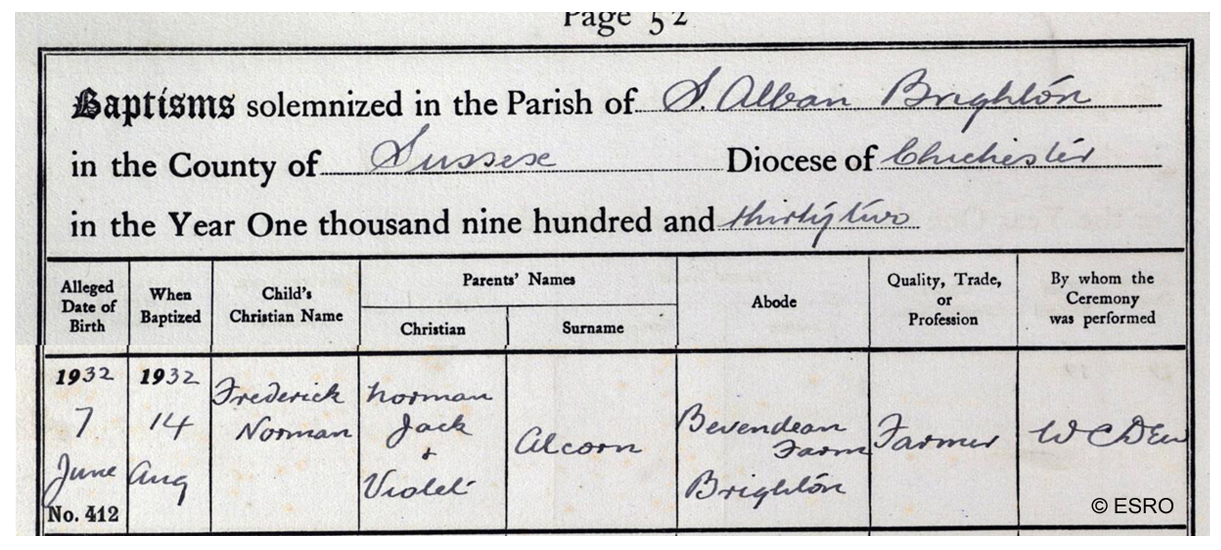 Page 52
Baptisms solemnized in the Parish of S. Alban Brighton
in the County of Sussex Diocese of Chichester
in the Year One thousand nine hundred and thirty two
Alleged Date of Birth
When Baptized
Child's Christian Name
Parents' Names
Christian
Surname
Abode
Quality, Trade, or Profession
By whom the Ceremony was performed
1932
7
June
No. 412
1932
14
Aug
Frederick
Norman
Norman
Jack
+
Violet
Alcorn
Bevendean
Farm
Brighton
Farmer
W C Dew
© ESRO